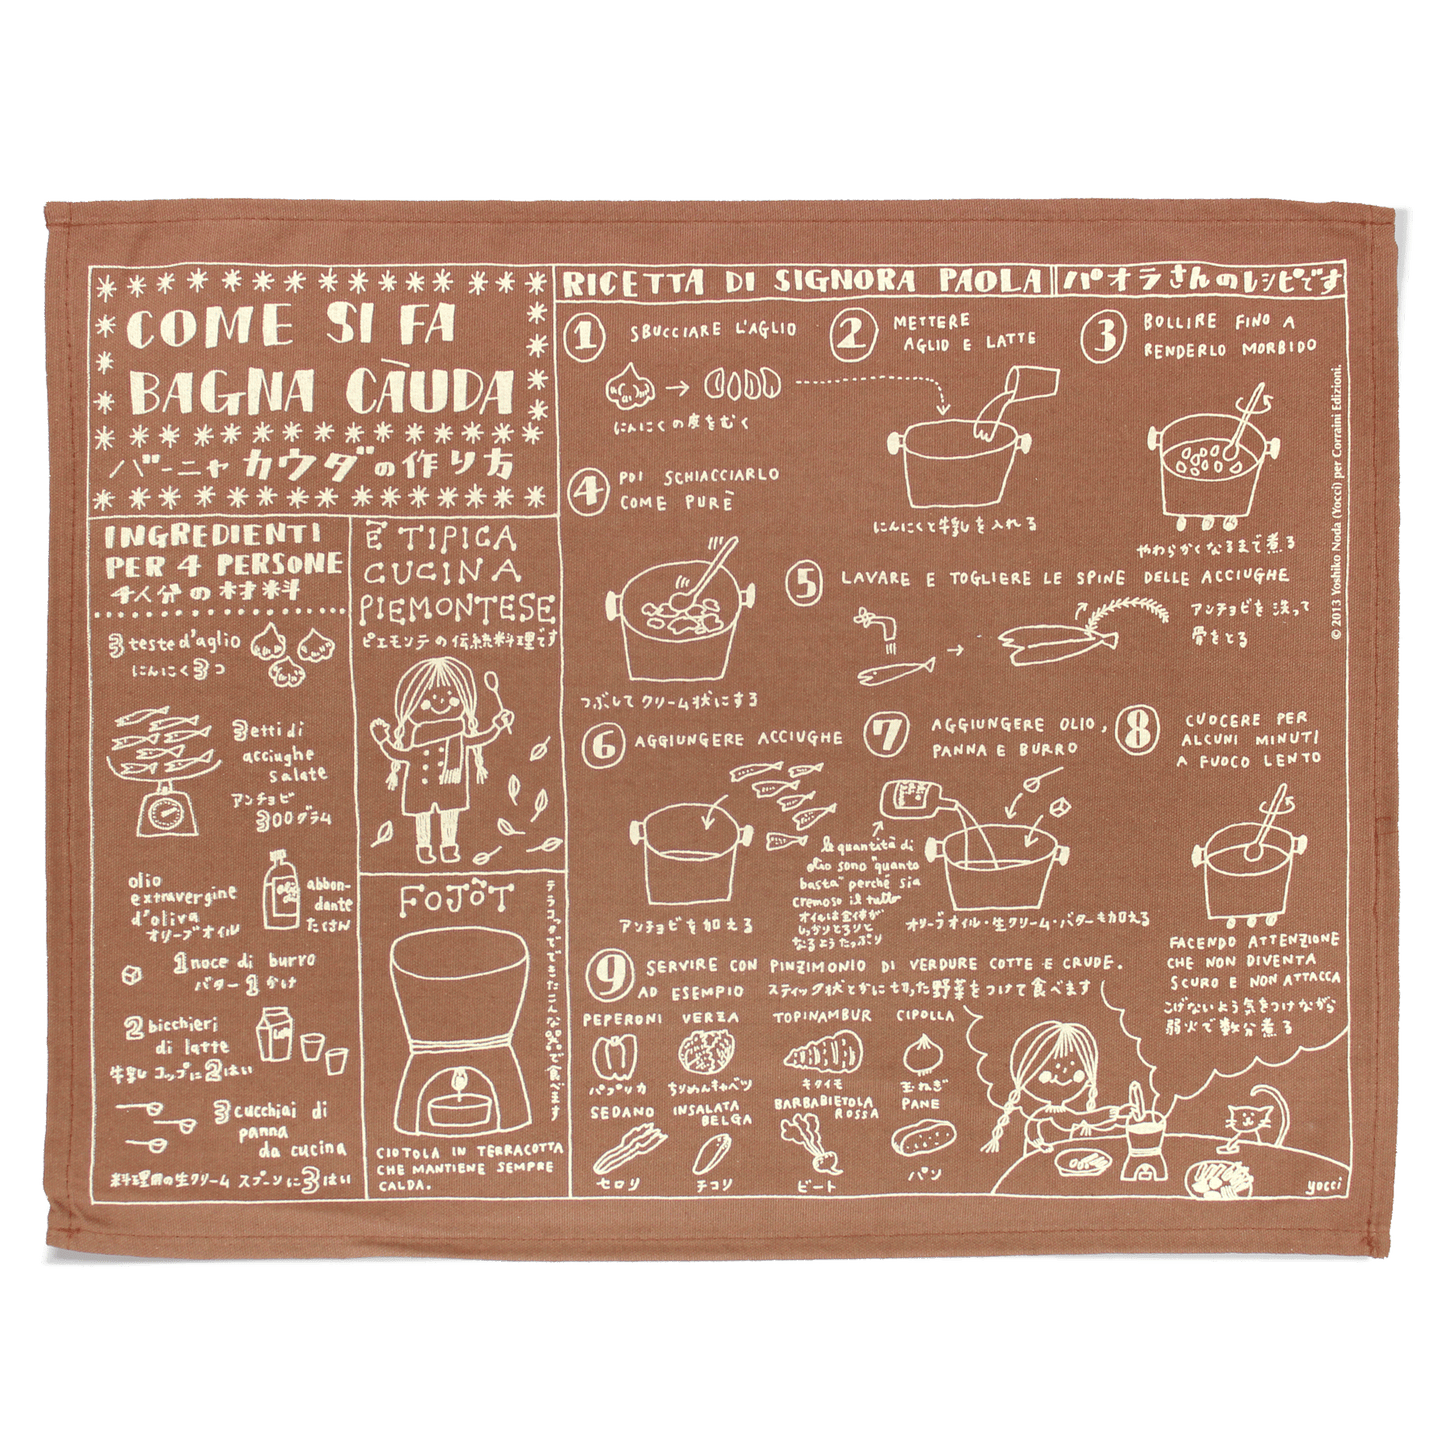 COME SI FA
BAGNA CÀUDA
バーニャカウダの作り方
INGREDIENTI
PER 4 PERSONE
4人分の材料
3 teste d'aglio
にんにく3つ
3 etti di
acciughe
salate
アンチョビ
300グラム
olio
extravergine
d'oliva
オリーブオイル
olio
abbon-
dante
たくさん
1 noce di burro
バター1かけ
2 bicchieri
di latte
牛乳 コップに2はい
3 cucchiai di
panna
da cucina
料理用の生クリーム スプーンに3はい
È TIPICA
CUCINA
PIEMONTESE
ピエモンテの伝統料理です
FOJÒT
テラコッタでできたこんな器で食べます
CIOTOLA IN TERRACOTTA
CHE MANTIENE SEMPRE
CALDA.
RICETTA DI SIGNORA PAOLA
パオラさんのレシピです
1 SBUCCIARE L'AGLIO
にんにくの皮をむく
2 METTERE
AGLIO E LATTE
にんにくと牛乳を入れる
3 BOLLIRE FINO A
RENDERLO MORBIDO
やわらかくなるまで煮る
4 POI SCHIACCIARLO
COME PURÈ
つぶしてクリーム状にする
5 LAVARE E TOGLIERE LE SPINE DELLE ACCIUGHE
アンチョビを洗って
骨をとる
6 AGGIUNGERE ACCIUGHE
アンチョビを加える
7 AGGIUNGERE OLIO,
PANNA E BURRO
la quantità di
olio sono "quanto
basta" perché sia
cremoso il tutto
オイルは全体が
しっかりとろりと
なるようたっぷり
オリーブオイル・生クリーム・バターも加える
8 CUOCERE PER
ALCUNI MINUTI
A FUOCO LENTO
FACENDO ATTENZIONE
CHE NON DIVENTA
SCURO E NON ATTACCA
こげないよう気をつけながら
弱火で数分煮る
9 SERVIRE CON PINZIMONIO DI VERDURE COTTE E CRUDE.
AD ESEMPIO スティック状とかに切った野菜をつけて食べます
PEPERONI
パプリカ
VERZA
ちりめんキャベツ
TOPINAMBUR
キクイモ
CIPOLLA
玉ねぎ
SEDANO
セロリ
INSALATA
BELGA
チコリ
BARBABIETOLA
ROSSA
ビート
PANE
パン
yocci
© 2013 Yoshiko Noda (Yocci) per Corraini Edizioni.